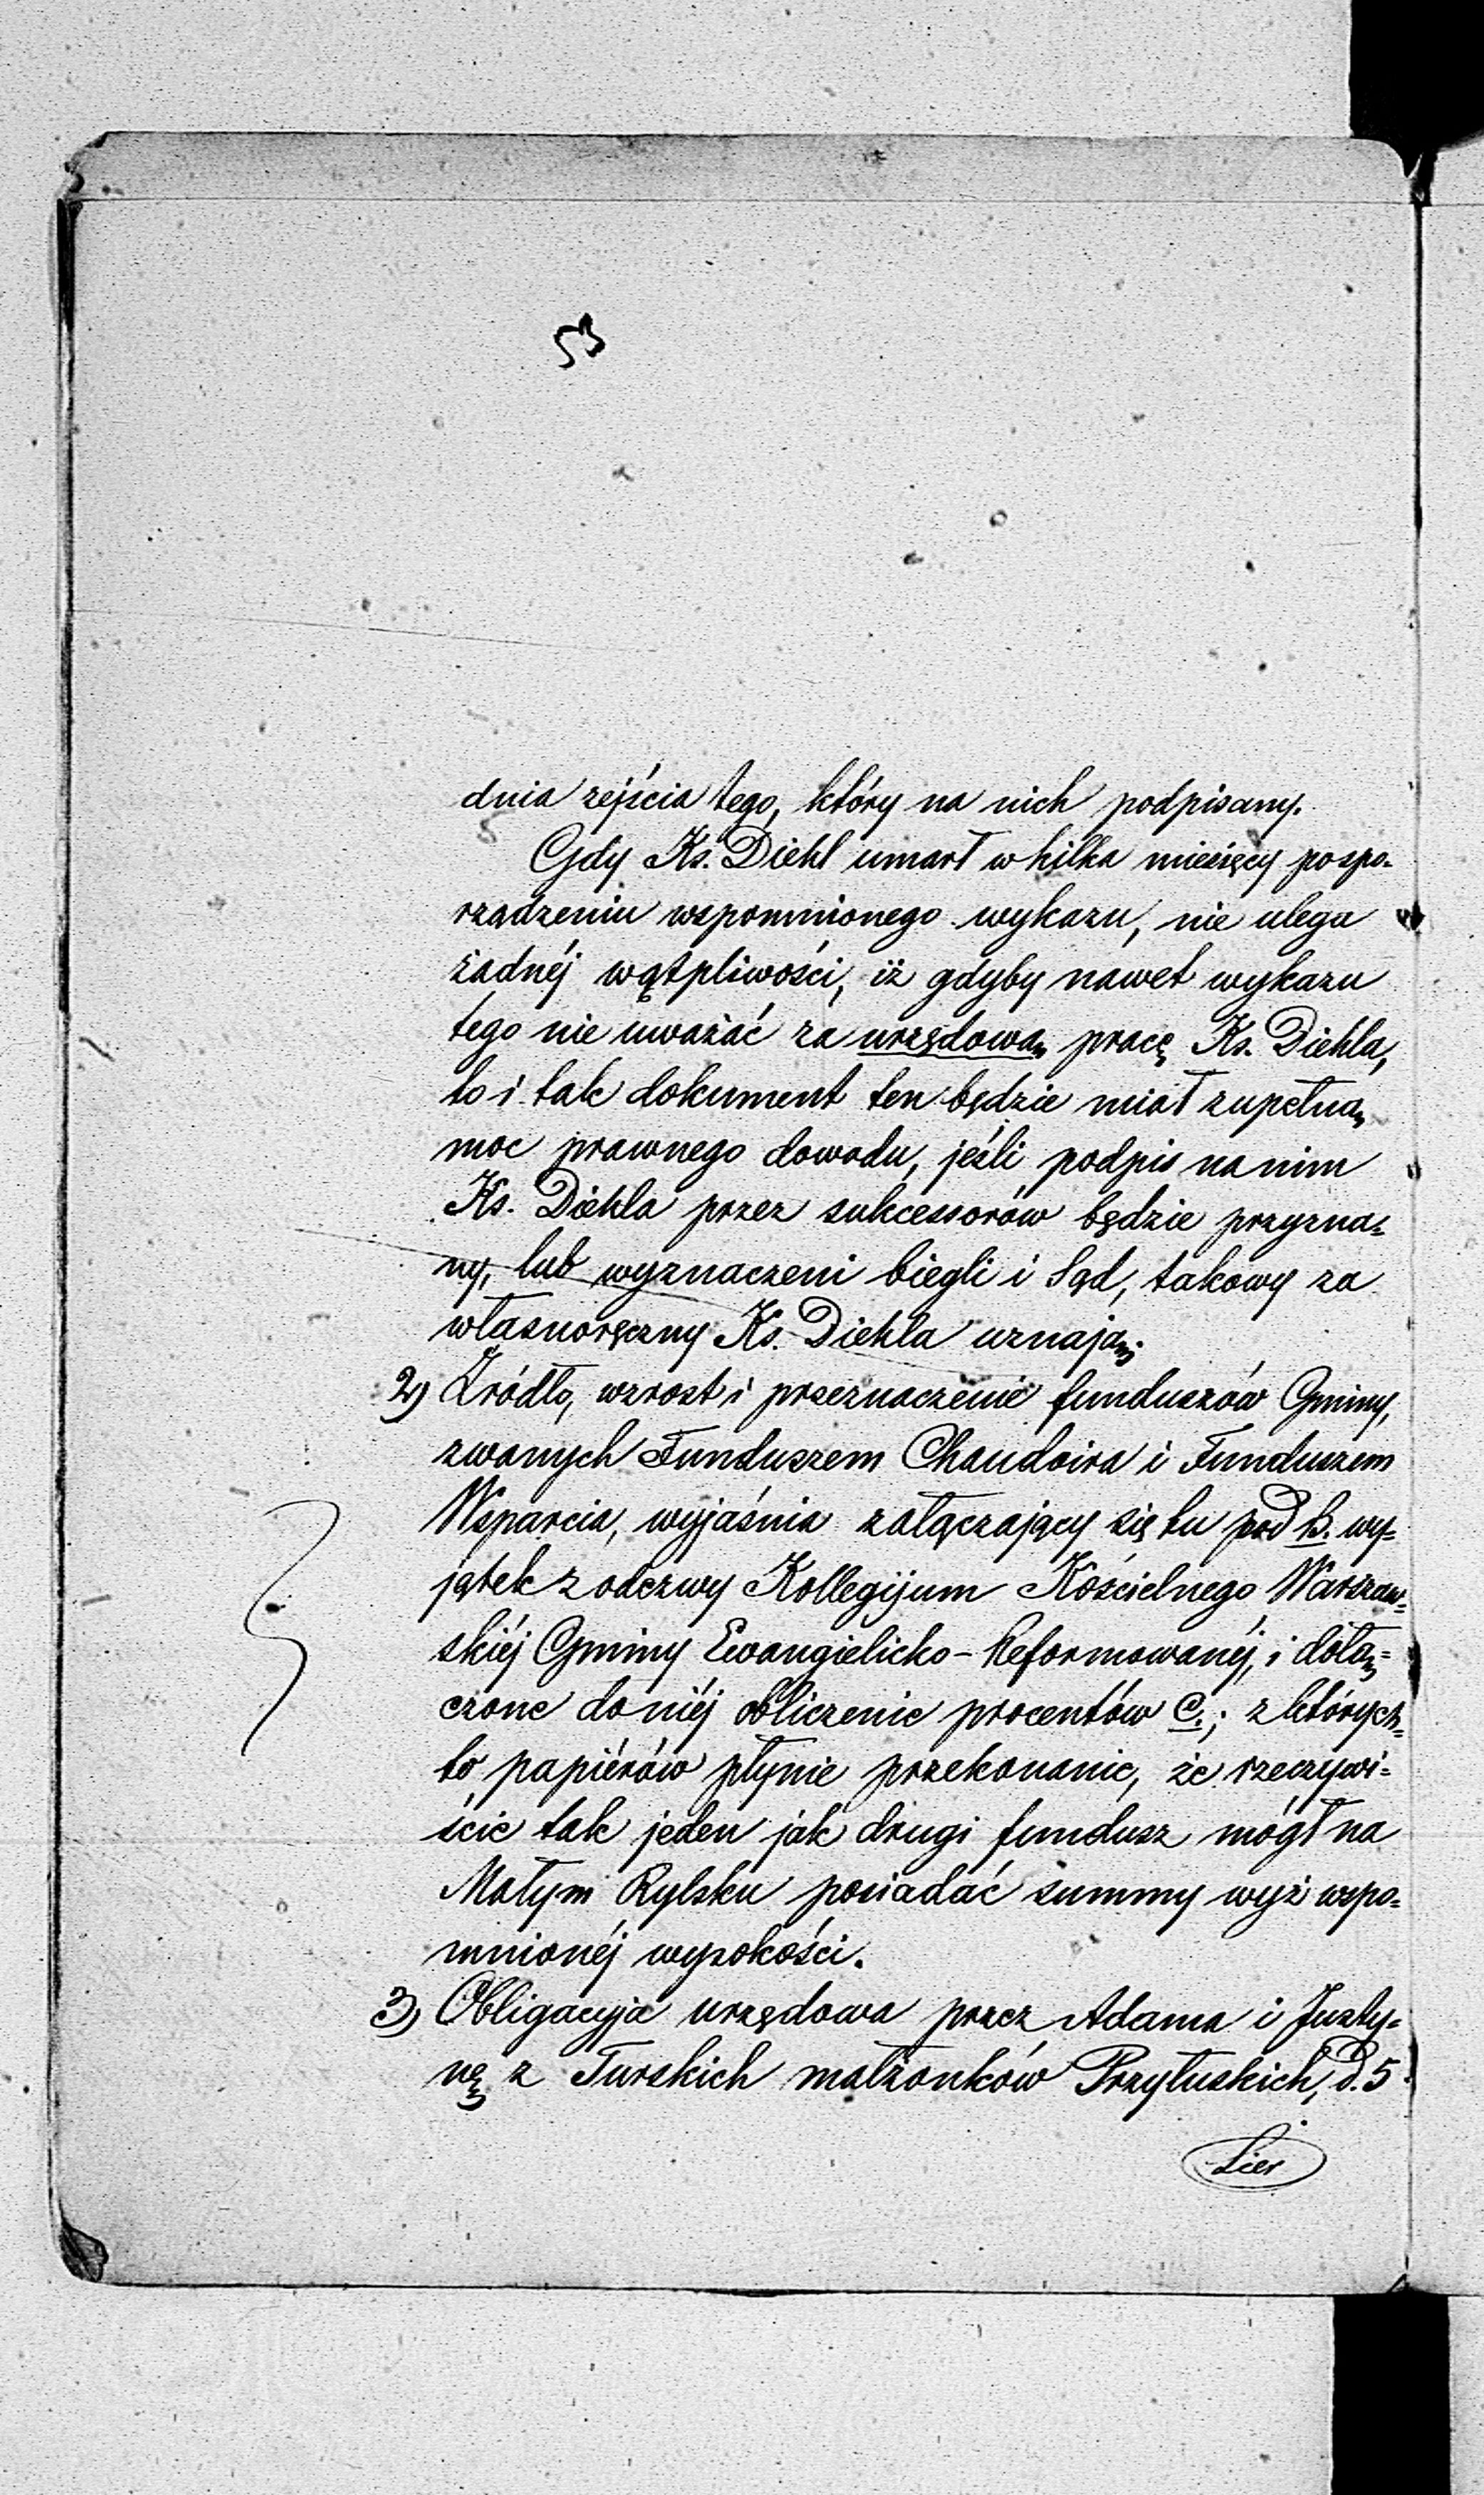 53
dnia zejścia tego, który na nich podpisany.
Gdy Ks. Diehl umarł w kilka miesięcy po spo-
rządzeniu wspomnionego wykazu, nie ulega
żadnéj wątpliwości, iż gdyby nawet wykazu
tego nie uważać za urzędową pracę Ks. Diehla,
to i tak dokument ten będzie miał zupełną
moc prawnego dowodu, jeśli podpis na nim
Ks. Diehla przez sukcessorów będzie przyzna=
ny, lub wyznaczeni biegli i Sąd, takowy za
własnoręczny Ks. Diehla uznają.
2) Źródło, wzrost i przeznaczenie funduszów Gminy,
zwanych Funduszem Chaudoira i Funduszem
Wsparcia, wyjaśnia załączający się tu pod B. wy=
jątek z odezwy Kollegijum Kościelnego Warszaw=
skiéj Gminy Ewangielicko-Reformowanéj, i dołą=
czone do niéj obliczenie procentów C.; z których=
to papiérów płynie przekonanie, że rzeczywi=
ście tak jeden jak drugi fundusz mógł na
Małym Rylsku posiadać summy wyż wspo=
mnionéj wysokości.
3) Obligacyja urzędowa przez Adama i Justy=
nę z Turskich małżonków Przyłuskich, d. 5